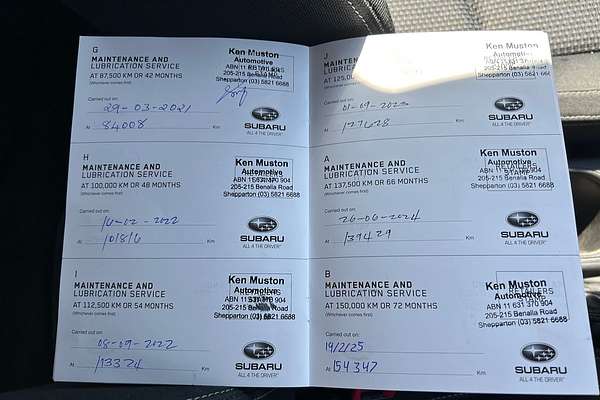 G
MAINTENANCE AND
LUBRICATION SERVICE
AT 87,500 KM OR 42 MONTHS
(Whichever comes first)
Ken Muston
Automotive
ABN 11 631 370 904
205-215 Benalla Road
Shepparton (03) 5821 6688
Carried out on:
29-03-2021
At 84008 Km
SUBARU
ALL 4 THE DRIVER
H
MAINTENANCE AND
LUBRICATION SERVICE
AT 100,000 KM OR 48 MONTHS
(Whichever comes first)
Ken Muston
Automotive
ABN 11 631 370 904
205-215 Benalla Road
Shepparton (03) 5821 6688
Carried out on:
14-02-2022
At 101816 Km
SUBARU
ALL 4 THE DRIVER
I
MAINTENANCE AND
LUBRICATION SERVICE
AT 112,500 KM OR 54 MONTHS
(Whichever comes first)
Ken Muston
Automotive
ABN 11 631 370 904
205-215 Benalla Road
Shepparton (03) 5821 6688
Carried out on:
08-09-2022
At 113324 Km
SUBARU
ALL 4 THE DRIVER
J
MAINTENANCE AND
LUBRICATION
AT 125,0
(Whichever comes first)
Ken Muston
Automotive
Shepparton (03) 5821 6688
Carried out on:
01-09-2023
At 127628 Km
SUBARU
ALL 4 THE DRIVER
A
MAINTENANCE AND
LUBRICATION SERVICE
AT 137,500 KM OR 66 MONTHS
(Whichever comes first)
Ken Muston
Automotive
RETAILERS
STAMP
ABN 11 631 370 904
205-215 Benalla Road
Shepparton (03) 5821 6688
Carried out on:
26-06-2024
At 139429 Km
SUBARU
ALL 4 THE DRIVER
B
MAINTENANCE AND
LUBRICATION SERVICE
AT 150,000 KM OR 72 MONTHS
(Whichever comes first)
Ken Muston
RETAILERS
Automotive
ABN 11 631 370 904
205-215 Benalla Road
Shepparton (03) 5821 6688
Carried out on:
19/2/25
At 154347 Km
SUBARU
ALL 4 THE DRIVER